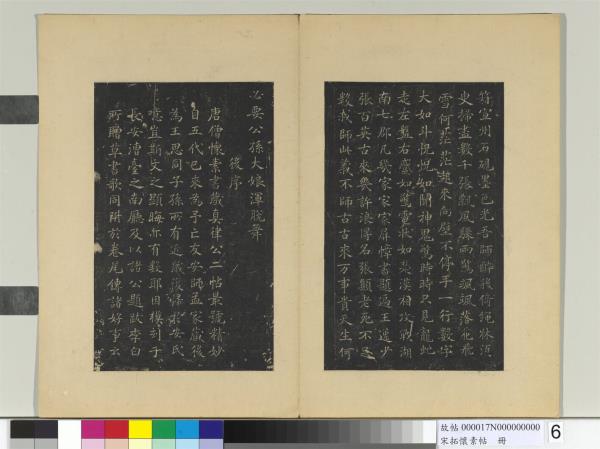 箱宣州石硯墨色光吾師醉後倚繩牀須
臾掃盡數千張飄風驟雨驚颯颯落花飛
雪何茫茫起來向壁不停手一行數字
大如斗怳怳如聞神鬼驚時時只見龍蛇
走左盤右蹙如驚電狀如楚漢相攻戰湖
南七郡凡幾家家家屏幛書題遍王逸少
張百英古來幾許浪得名張顛老死不足
數我師此義不師古古來万事貴天生何
必要公孫大娘渾脫舞
後序
唐僧懷素書藏真律公二帖最號精妙
自五代已來為予亡友安師孟家藏後
為王思同子孫所有近歲復歸於安氏
噫宜斯文之顯晦亦有數耶因模刻于
長安漕臺之南廳及以諸公題跋李白
所贈草書歌同附於卷尾俾諸好事云
故帖 000017N000000000
宋拓懷素帖 冊
6